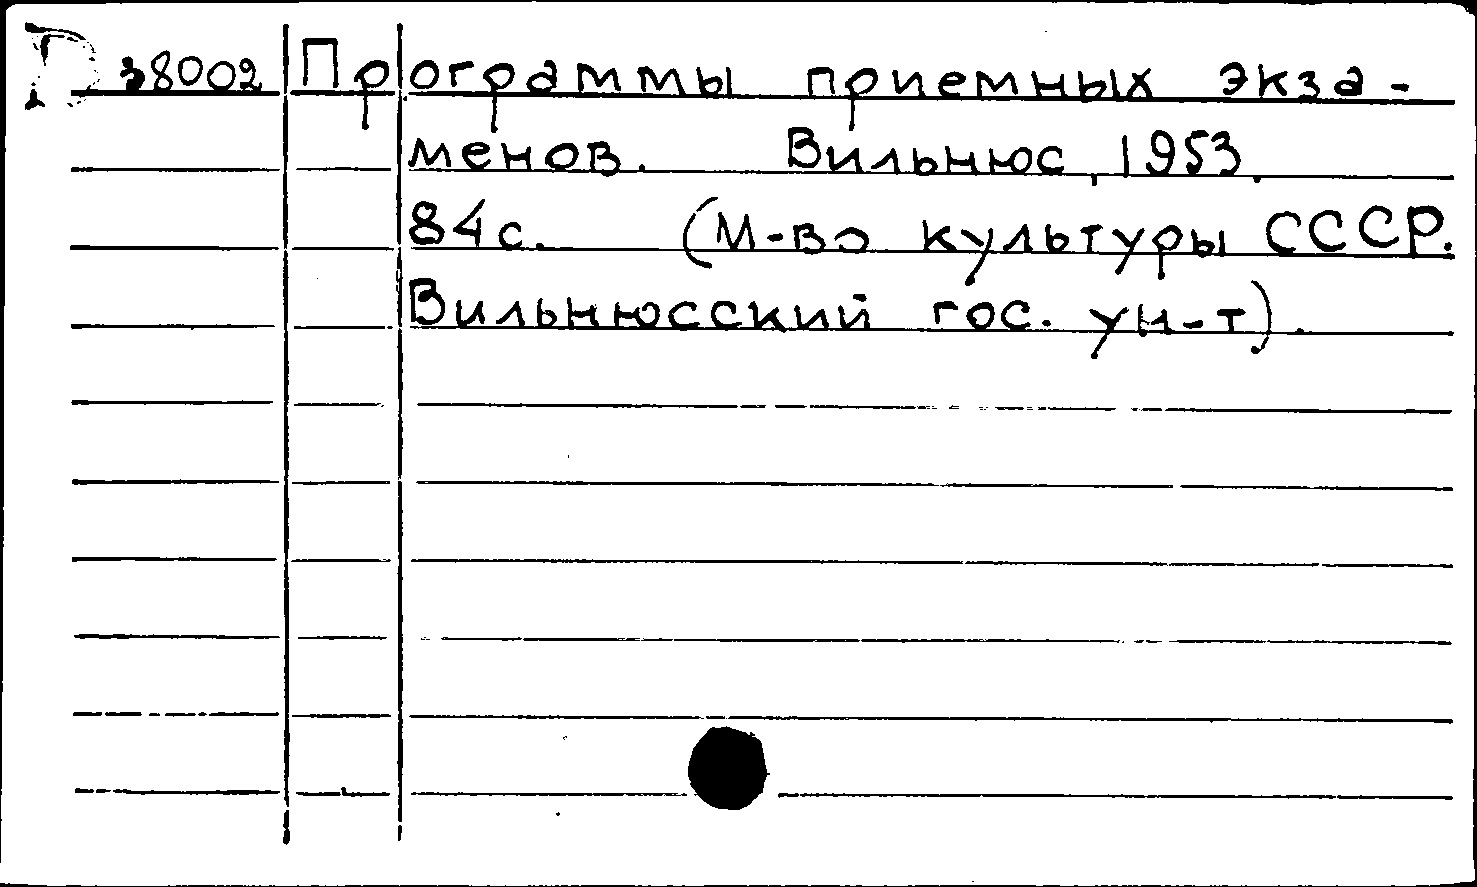 38002 Программы приемных экза-
менов. Вильнюс, 1953.
84с. (М-во культуры СССР.
Вильнюсский гос. ун-т).